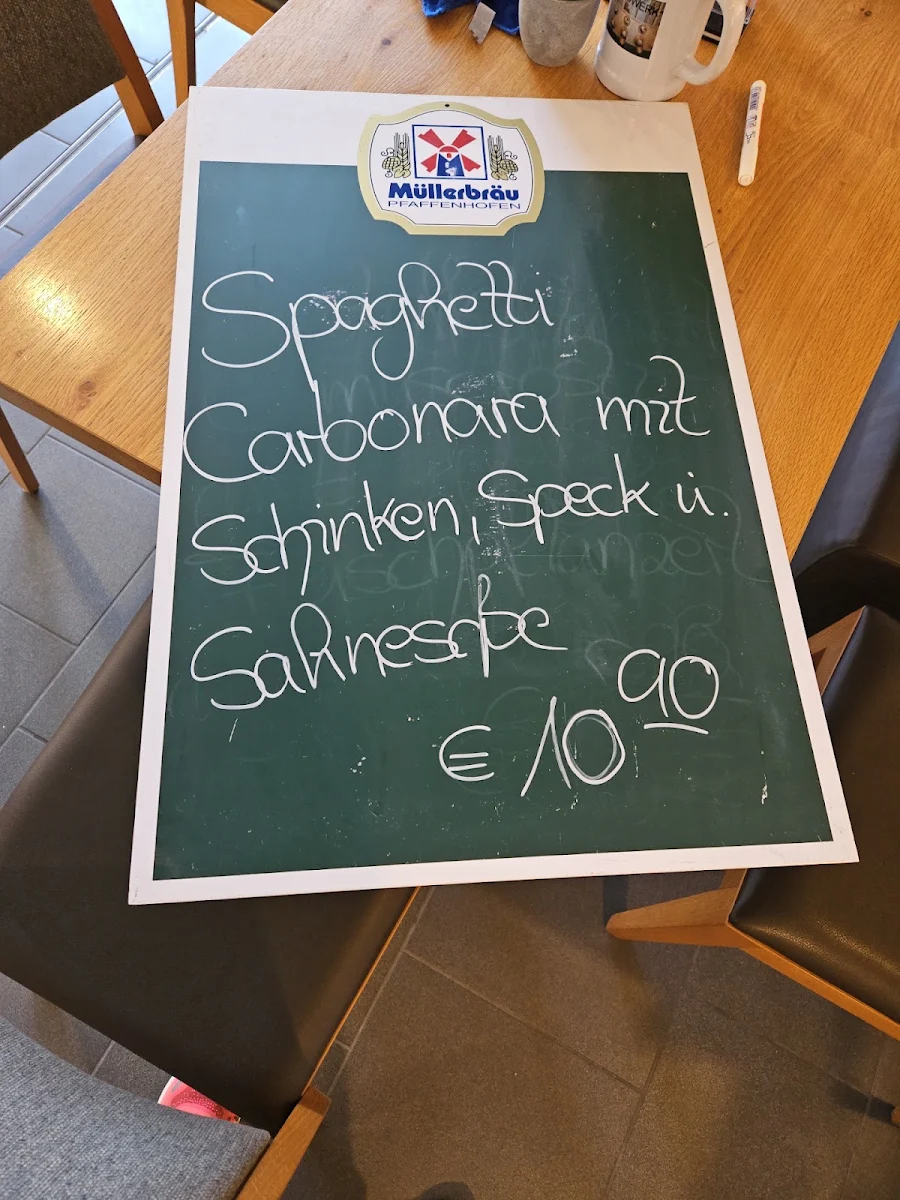 Müllerbräu
PFAFFENHOFEN
Spaghetti
Carbonara mit
Schinken, Speck u.
Sahnesoße
€ 10 90